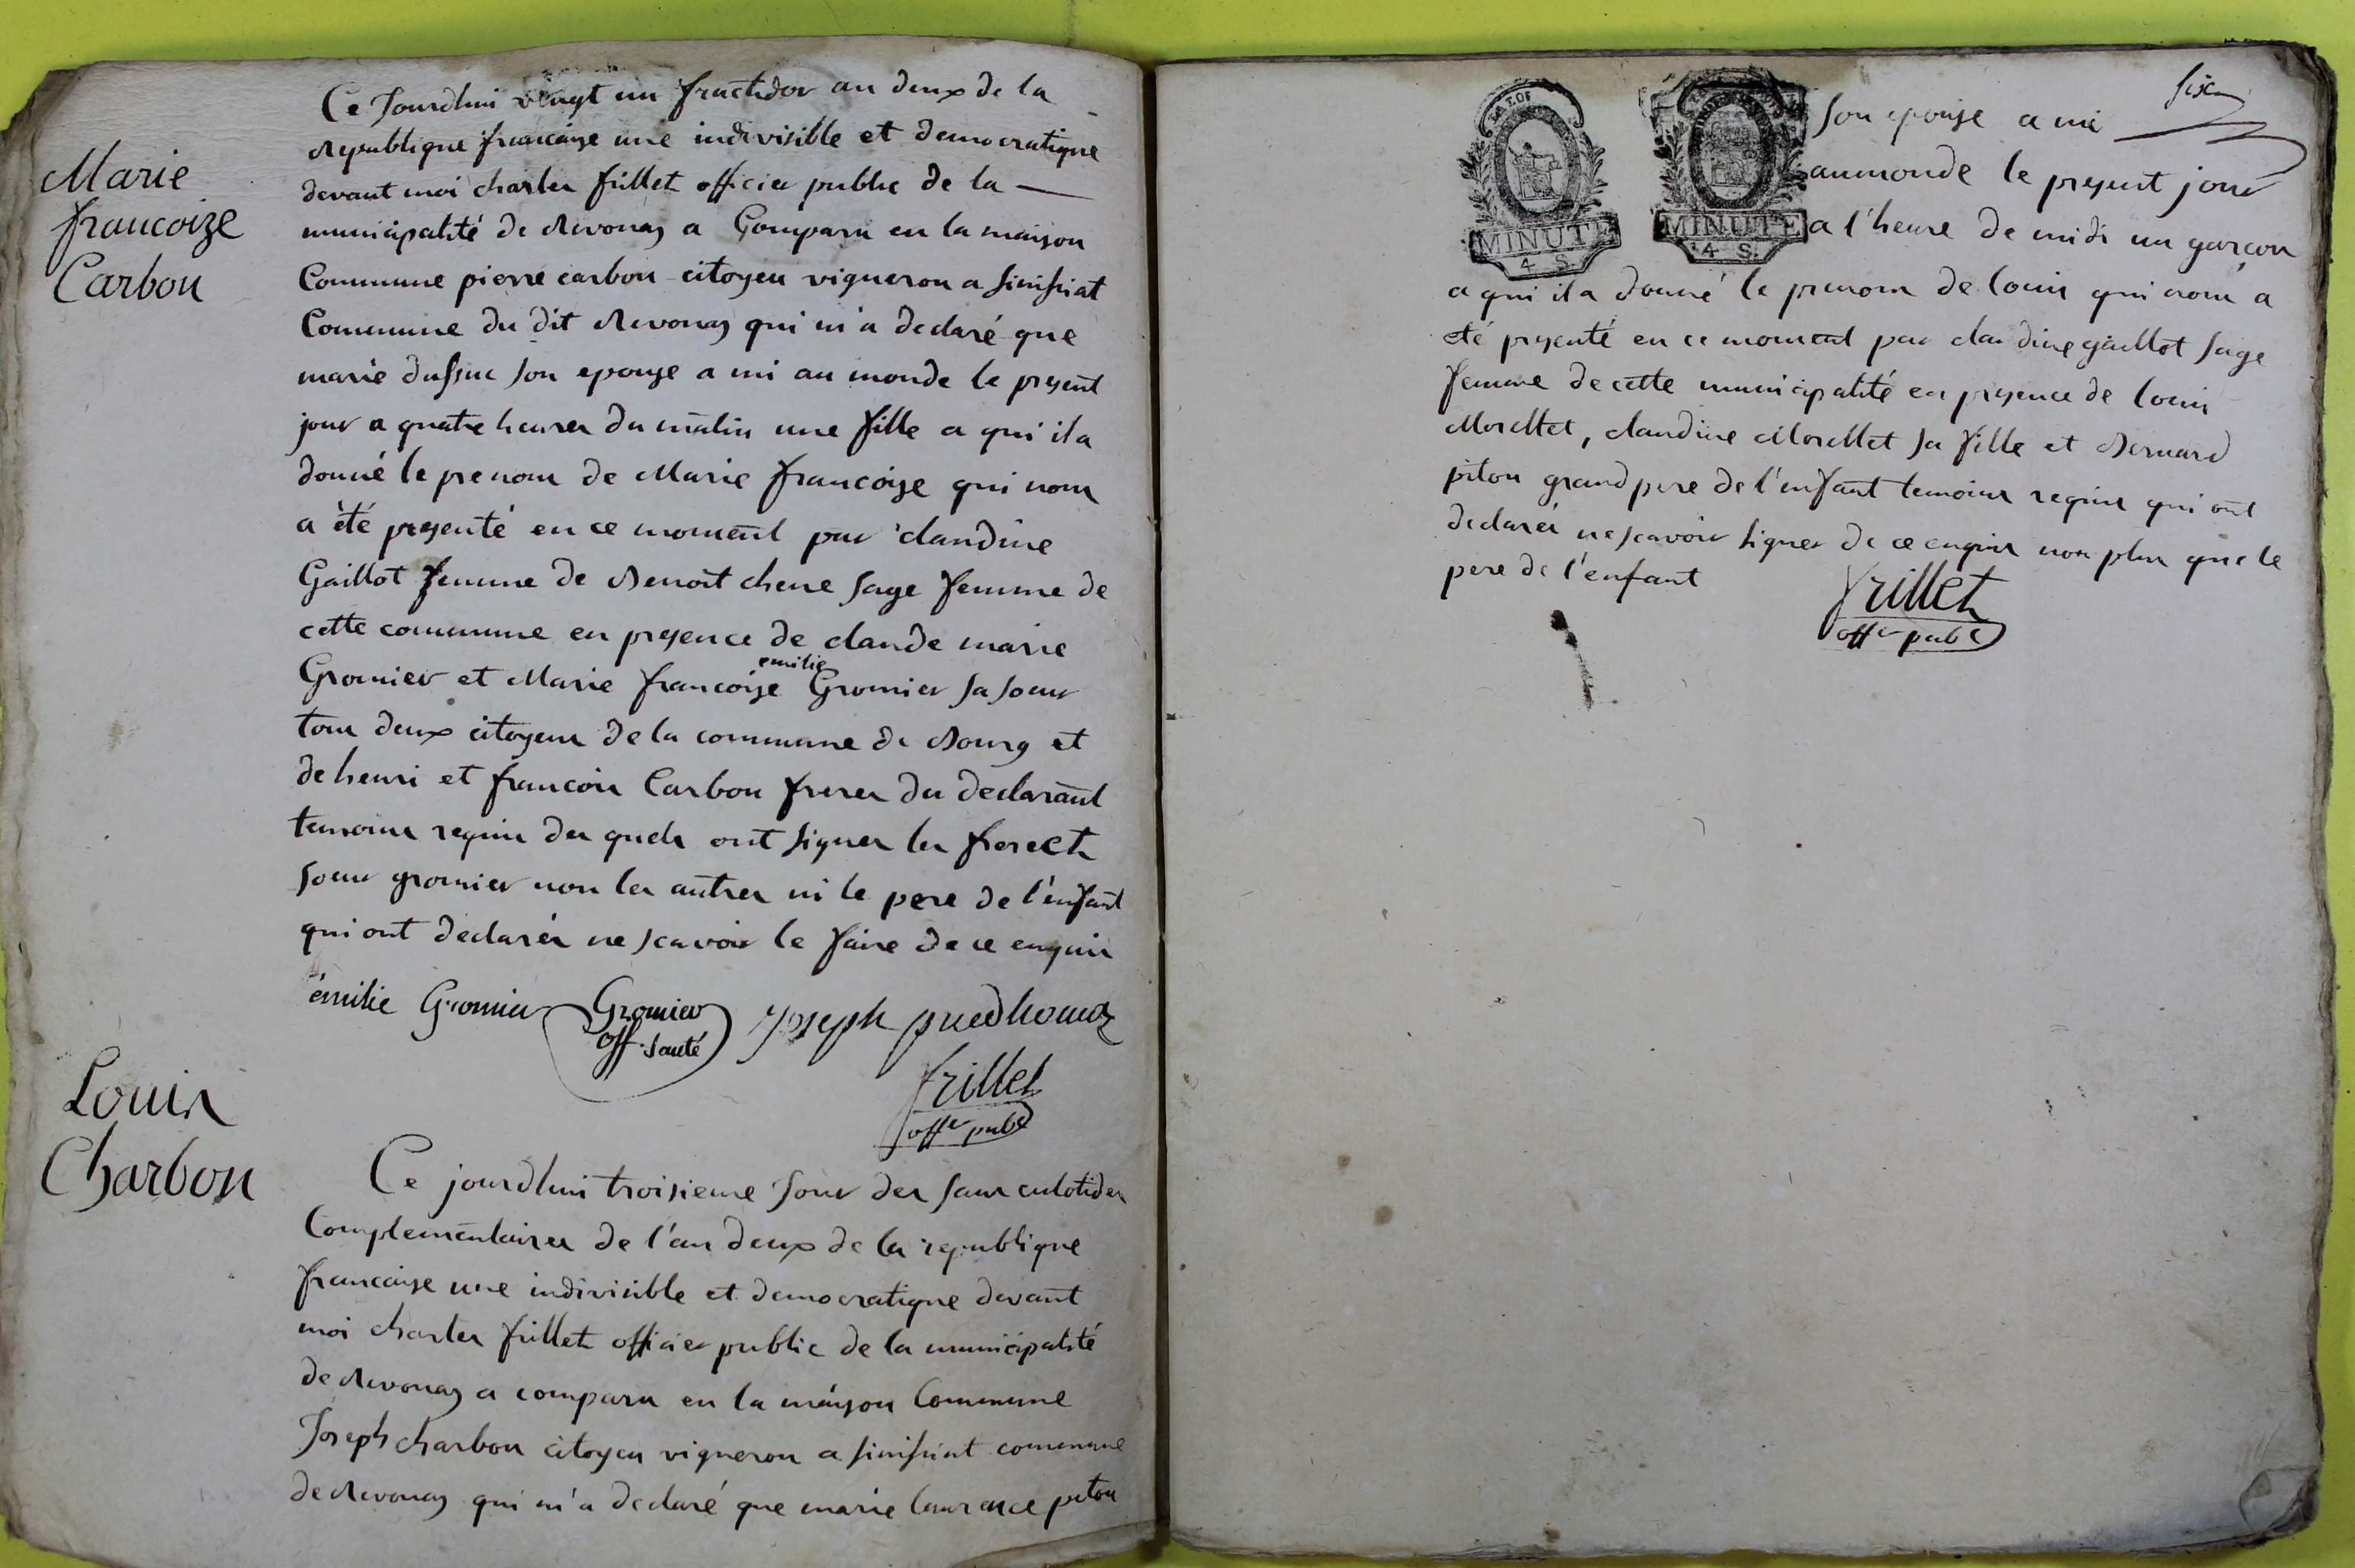 Marie
francoize
Carbon
Ce Jourdhui vingt un fructidor an deux de la
Republique francaise une indivisible et democratique
devant moi charles frillet officier public de la
municipalité de Revonas a Comparu en la maison
Commune pierre carbon citoyen vigneron a Sinissiat
Commune du dit Revonas qui m'a declaré que
marie dussuc son epouse a mi au monde le present
jour a quatre heures du matin une fille a qui il a
donné le prenom de Marie francoise qui nous
a été presenté en ce moment par claudine
Gaillot femme de Benoit chene sage femme de
cette commune en presence de claude marie
Gromier et Marie francoise emilie Gromier sa soeur
tous deux citoyens de la commune de Bourg et
de henri et francois Carbon freres du declarant
temoins requis des quels ont signer les frere et
soeur gromier non les autres ni le pere de l'enfant
qui ont declarés ne scavoir le faire de ce enquis
émilie Gromier Gromier Joseph
off. santé
frillet
offer pube
Louis
Charbon
Ce jourdhui troisieme Jour des sans culotides
Complementaires de l'an deux de la republique
francaise une indivisible et democratique devant
moi charles frillet officier public de la municipalité
de Revonas a comparu en la maison Commune
Joseph charbon citoyen vigneron a sinissiat commune
de Revonas qui m'a declaré que marie laurence piton
six
MINUTE
4 S.
MINUTE
4 S.
son epouse a mi
au monde le present jour
a l'heure de midi un garcon
a qui il a donné le prenom de louis qui nous a
eté presenté en ce moment par claudine gaillot sage
femme de cette municipalité en presence de louis
Morellet, claudine Morellet sa fille et Bernard
piton grand pere de l'enfant temoins requis qui ont
declarés ne scavoir signer de ce enquis non plus que le
pere de l'enfant
frillet
offer pube